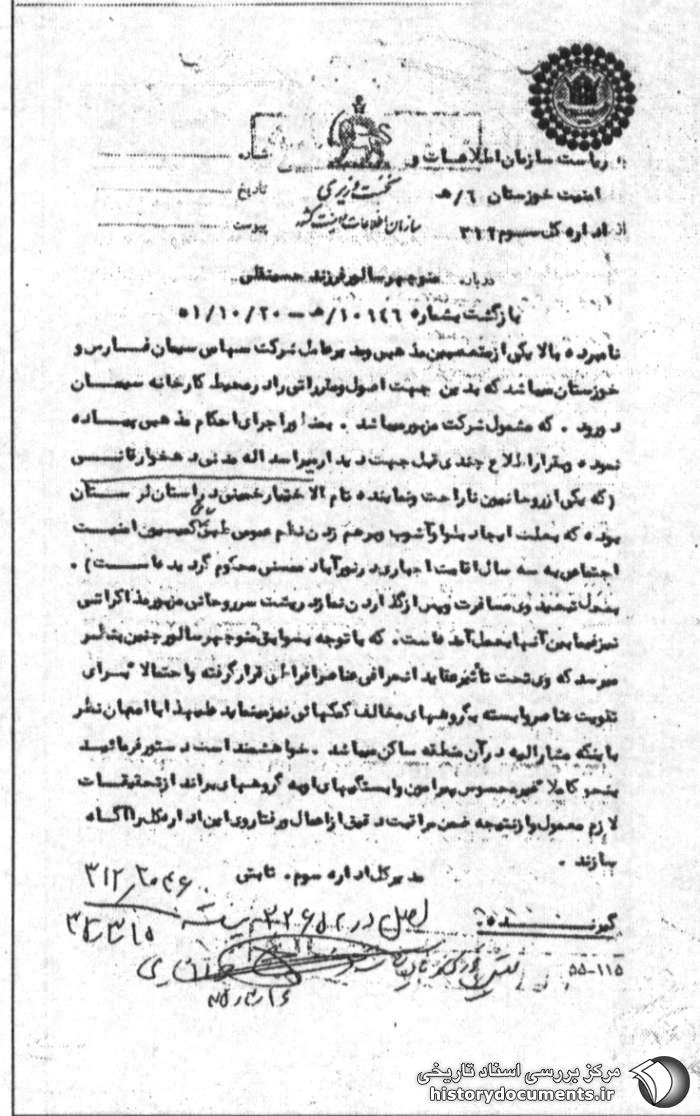 به ریاست سازمان اطلاعات و
امنیت خوزستان ۶/ه‍
از اداره کل سوم ۳۱۲
نخست وزیری
سازمان اطلاعات و امنیت کشور
شماره
تاریخ
پیوست
درباره منوچهر سالور فرزند حسینقلی
بازگشت بشماره ۱۰۶۴۶/ه‍ – ۵۱/۱۰/۲۰
نامبرده بالا یکی از متعصبین مذهبی و مدیر عامل شرکت سهامی سیمان فارس و
خوزستان میباشد که بدین جهت اصول و مقرراتی را در محیط کارخانه سیمان
درود . که مشمول شرکت مزبور میباشد . بمنظور اجرای احکام مذهبی پیاده
نموده و بقرار اطلاع چندی قبل جهت دیدار میر اسد اله مدنی دهخوارقانی
(که یکی از روحانیون ناراحت و نماینده تام الاختیار خمینی در استان لرستان
بوده که بعلت ایجاد بلوا و آشوب و برهم زدن نظم عمومی طبق رأی کمیسیون امنیت
اجتماعی به سه سال اقامت اجباری در نورآباد ممسنی محکوم گردیده است) .
بمحل تبعید وی مسافرت و پس از گذاردن نماز در پشت سر روحانی مزبور مذاکراتی
نیز فیمابین آنها بعمل آمده است . که با توجه بسوابق منوچهر سالور چنین بنظر
میرسد که وی تحت تأثیر عقاید انحرافی عناصر افراطی قرار گرفته و احتمالا برای
تقویت عناصر وابسته به گروههای مخالف کمکهائی نیز مینماید علیهذا با امعان نظر
باینکه مشارالیه در آن منطقه ساکن میباشد . خواهشمند است دستور فرمائید
بنحو کاملا غیر محسوس پیرامون وابستگیهای او به گروههای برانداز تحقیقات
لازم معمول و از نتیجه ضمن مراقبت دقیق از اعمال و رفتار وی این اداره کل را آگاه
سازند .
مدیر کل اداره سوم . ثابتی
۳۱۲/۲۰۴۶
۳۵/۳/۱۵
گیرنده :
اصل در ۳۲۶۵۲
۵۵-۱۱۵
مرکز بررسی اسناد تاریخی
historydocuments.ir